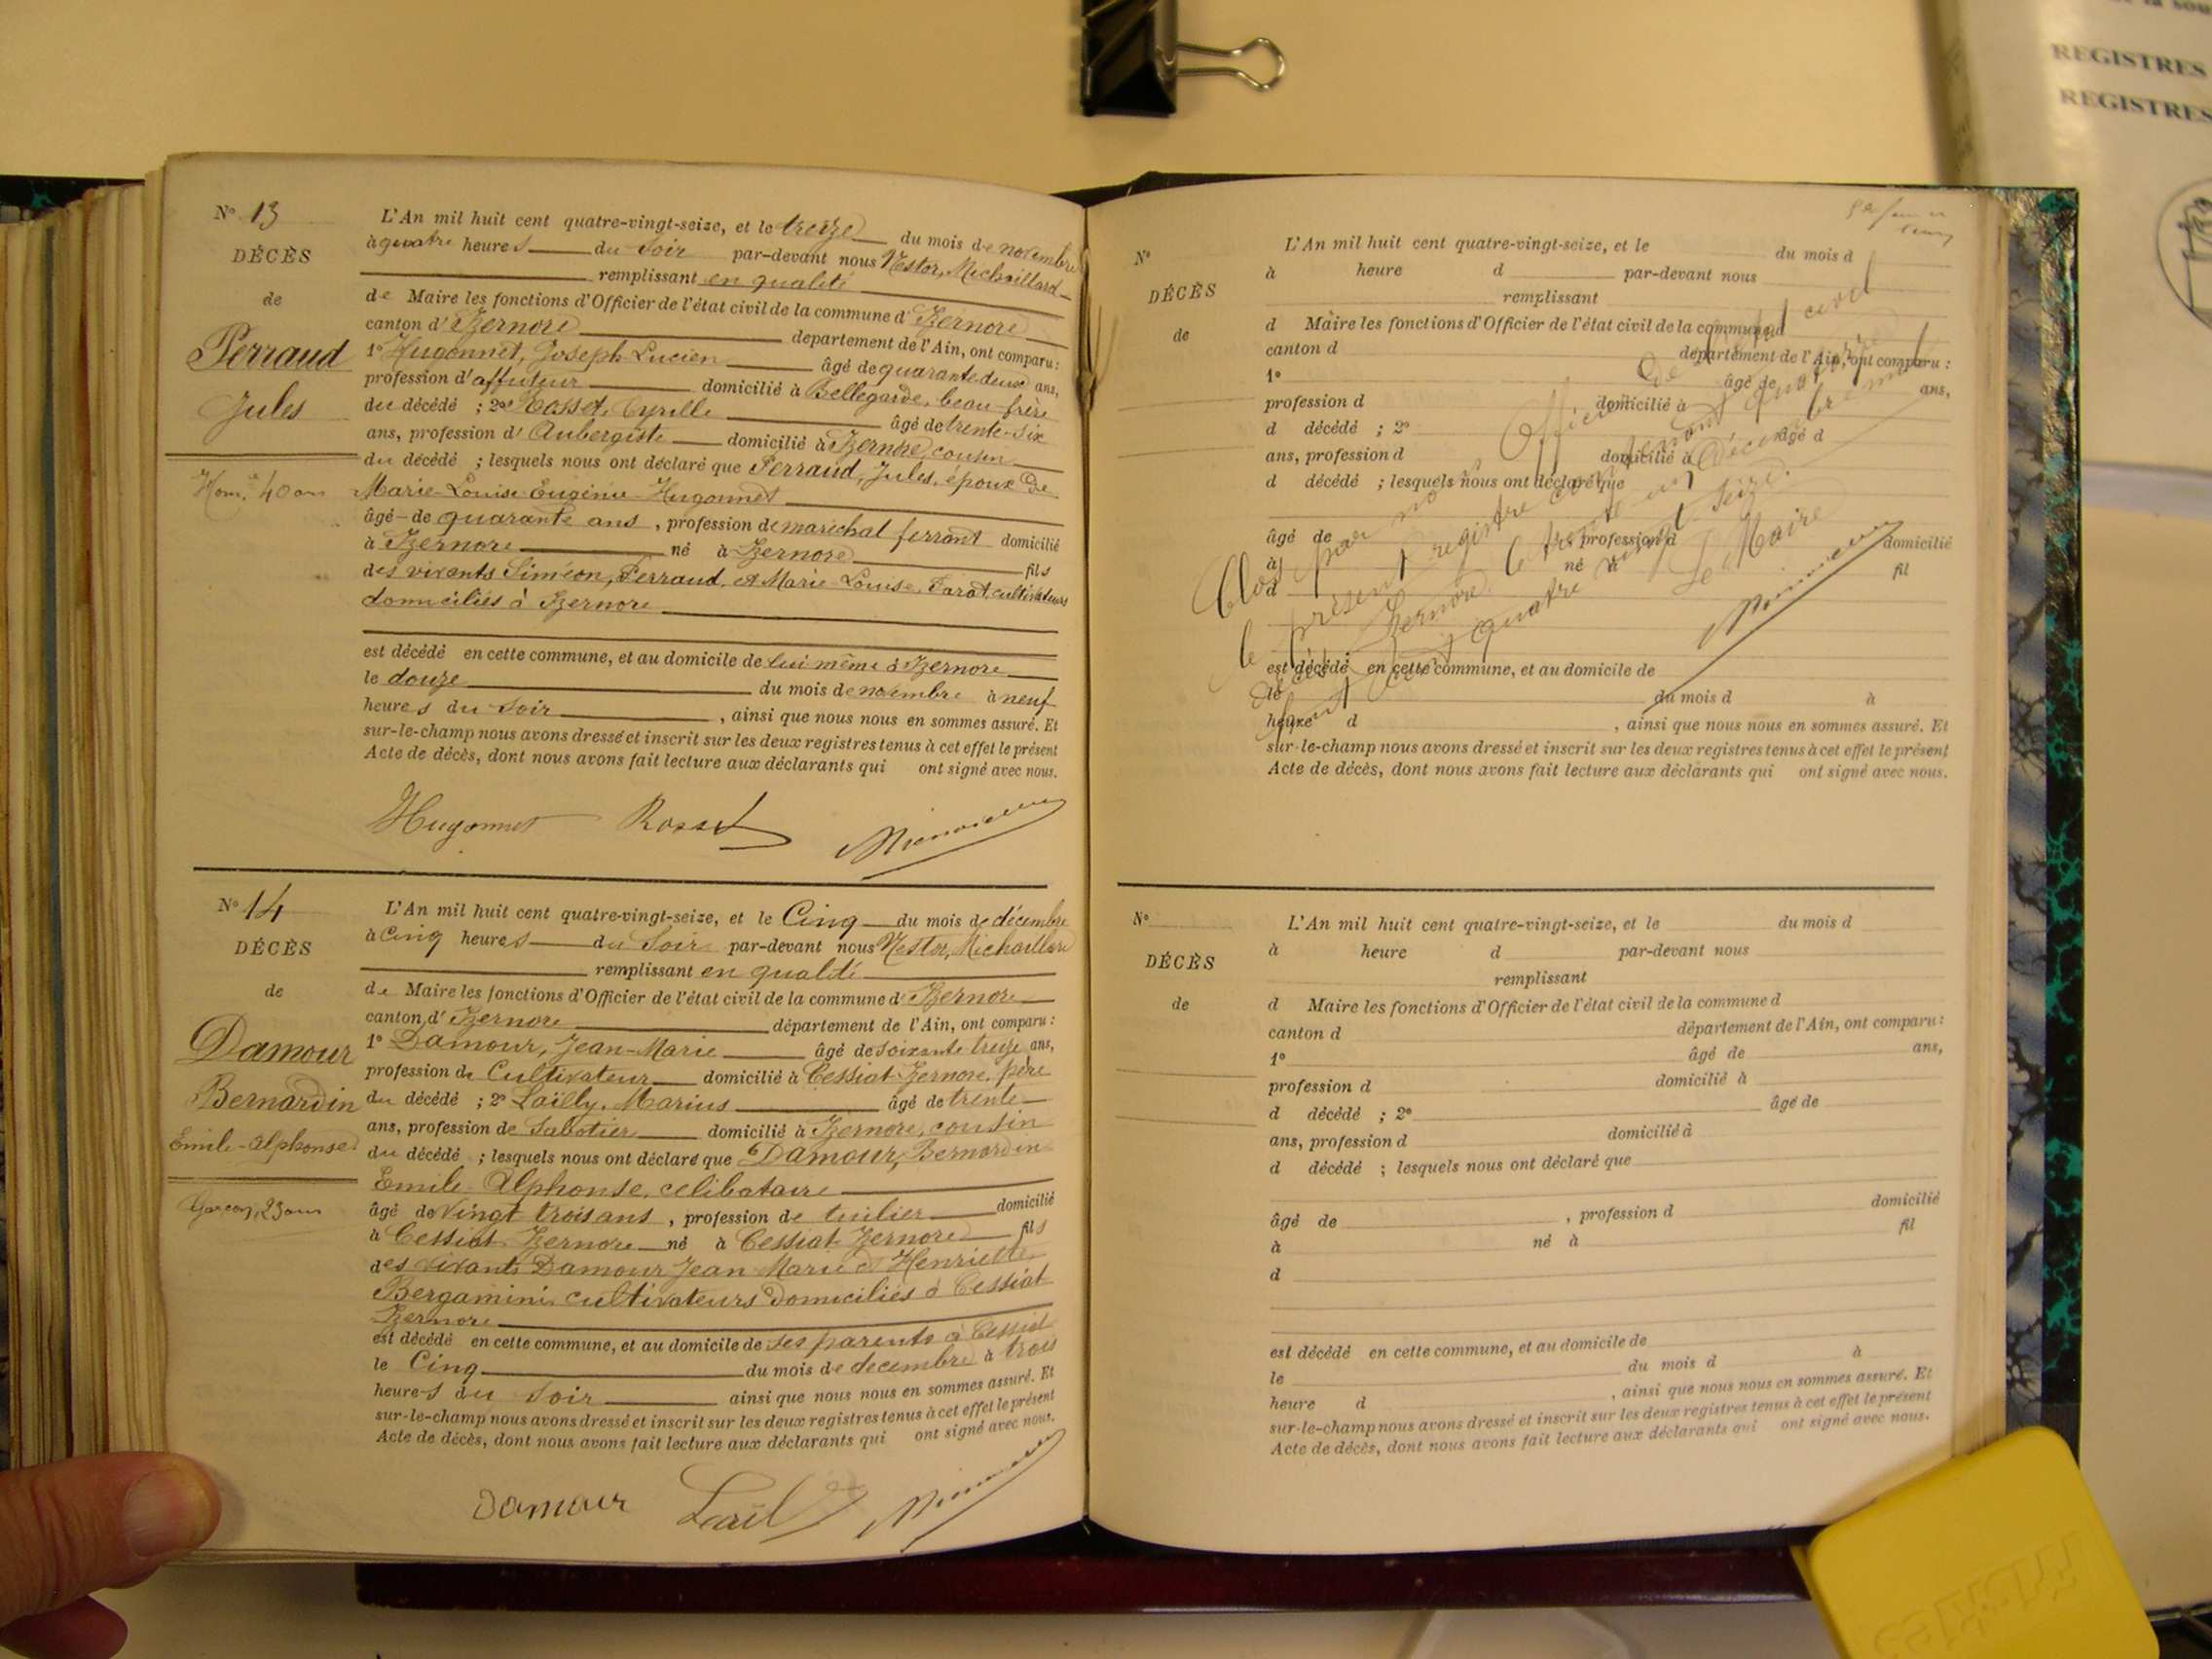 N° 13
DÉCÈS
de
Perraud
Jules
Hom. 40 ans
L'An mil huit cent quatre-vingt-seize, et le treize du mois de novembre
à quatre heures du Soir par-devant nous Nestor, Michaillard
remplissant en qualité
de Maire les fonctions d'Officier de l'état civil de la commune d'Izernore
canton d'Izernore département de l'Ain, ont comparu :
1° Hugonnet, Joseph-Lucien âgé de quarante deux ans,
profession d'affuteur domicilié à Bellegarde, beau-frère
du décédé ; 2° Rosset, Cyrille âgé de trente-six
ans, profession d'Aubergiste domicilié à Izernore, cousin
du décédé ; lesquels nous ont déclaré que Perraud, Jules, époux de
Marie-Louise Eugénie Hugonnet
âgé de quarante ans, profession de maréchal ferrant domicilié
à Izernore né à Izernore fils
des vivants Siméon, Perraud, et Marie Louise, cultivateurs
domiciliés à Izernore
est décédé en cette commune, et au domicile de lui même à Izernore
le douze du mois de novembre à neuf
heures du Soir, ainsi que nous nous en sommes assuré. Et
sur-le-champ nous avons dressé et inscrit sur les deux registres tenus à cet effet le présent
Acte de décès, dont nous avons fait lecture aux déclarants qui ont signé avec nous.
Hugonnet Rosset
N° 14
DÉCÈS
de
Damour
Bernardin
Emile-Alphonse
Garçon, 23 ans
L'An mil huit cent quatre-vingt-seize, et le Cinq du mois de décembre
à Cinq heures du Soir par-devant nous Nestor, Michaillard
remplissant en qualité
de Maire les fonctions d'Officier de l'état civil de la commune d'Izernore
canton d'Izernore département de l'Ain, ont comparu :
1° Damour, Jean-Marie âgé de soixante treize ans,
profession de Cultivateur domicilié à Cessiat Izernore, père
du décédé ; 2° Laïlly, Marius âgé de trente
ans, profession de Sabotier domicilié à Izernore, cousin
du décédé ; lesquels nous ont déclaré que Damour, Bernardin
Emile Alphonse, célibataire
âgé de Vingt trois ans, profession de tuilier domicilié
à Cessiat Izernore né à Cessiat Izernore fils
des vivants Damour Jean Marie et Henriette
Bergamini cultivateurs domiciliés à Cessiat
Izernore
est décédé en cette commune, et au domicile de ses parents à Cessiat
le Cinq du mois de décembre à trois
heures du Soir ainsi que nous nous en sommes assuré. Et
sur-le-champ nous avons dressé et inscrit sur les deux registres tenus à cet effet le présent
Acte de décès, dont nous avons fait lecture aux déclarants qui ont signé avec nous.
Damour
N°
DÉCÈS
de
L'An mil huit cent quatre-vingt-seize, et le du mois d
à heure d par-devant nous
remplissant
d Maire les fonctions d'Officier de l'état civil de la commune d
canton d département de l'Ain, ont comparu :
1° âgé de ans,
profession d domicilié à
d décédé ; 2° âgé d
ans, profession d domicilié à
d décédé ; lesquels nous ont déclaré que
âgé de, profession d domicilié
à né à fil
d
est décédé en cette commune, et au domicile de
le du mois d à
heure d, ainsi que nous nous en sommes assuré. Et
sur-le-champ nous avons dressé et inscrit sur les deux registres tenus à cet effet le présent
Acte de décès, dont nous avons fait lecture aux déclarants qui ont signé avec nous.
Clos par nous Officier de l'état civil
le présent registre contenant quatorze
décès Izernore le trente un Décembre mil
huit cent quatre vingt seize.
Le Maire
N°
DÉCÈS
de
L'An mil huit cent quatre-vingt-seize, et le du mois d
à heure d par-devant nous
remplissant
d Maire les fonctions d'Officier de l'état civil de la commune d
canton d département de l'Ain, ont comparu :
1° âgé de ans,
profession d domicilié à
d décédé ; 2° âgé de
ans, profession d domicilié à
d décédé ; lesquels nous ont déclaré que
âgé de, profession d domicilié
à né à fil
d
est décédé en cette commune, et au domicile de
le du mois d à
heure d, ainsi que nous nous en sommes assuré. Et
sur-le-champ nous avons dressé et inscrit sur les deux registres tenus à cet effet le présent
Acte de décès, dont nous avons fait lecture aux déclarants qui ont signé avec nous.
REGISTRES
REGISTRES